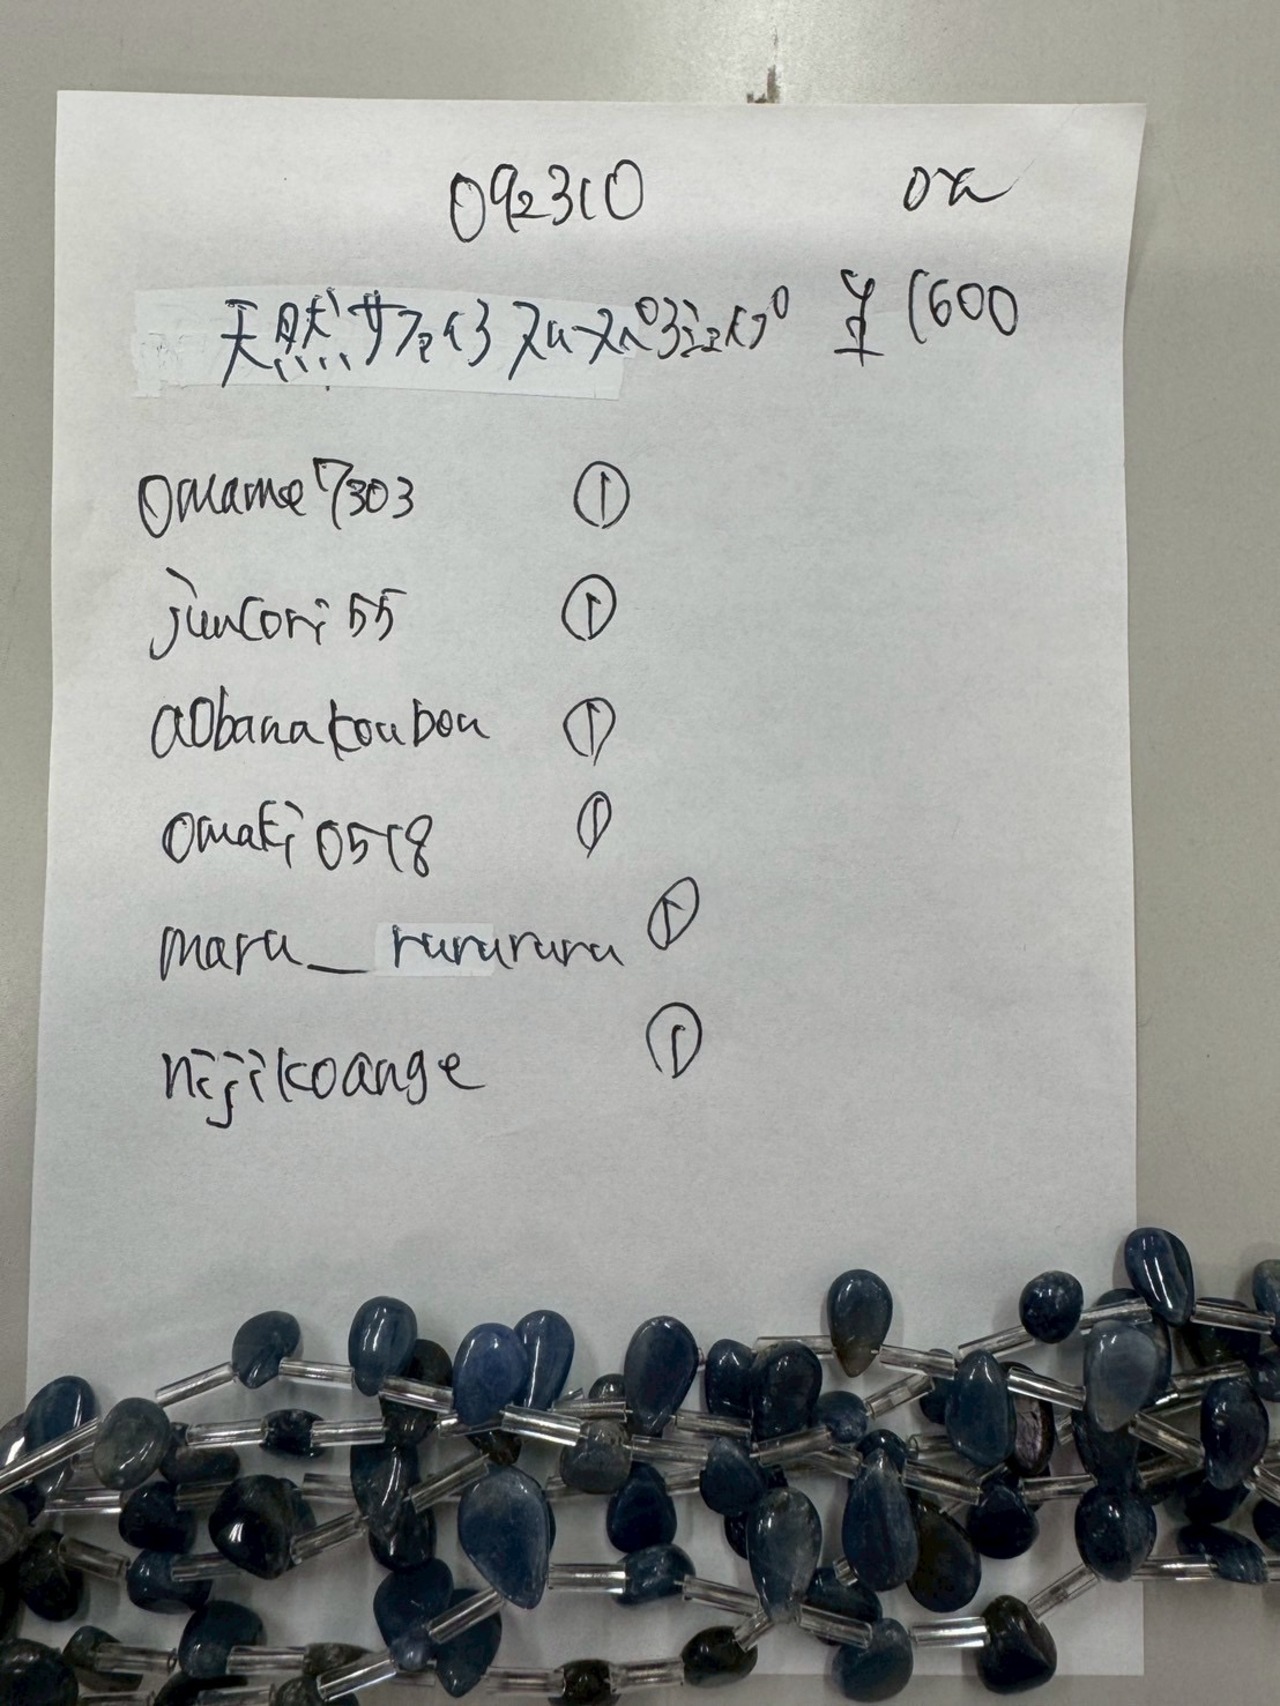 092310 ox
天然サファイ ¥1600
omame7303 ①
juncori55 ①
aobanakoubou ①
omaki0518 ①
maru_rurururu ①
nijikoange ①